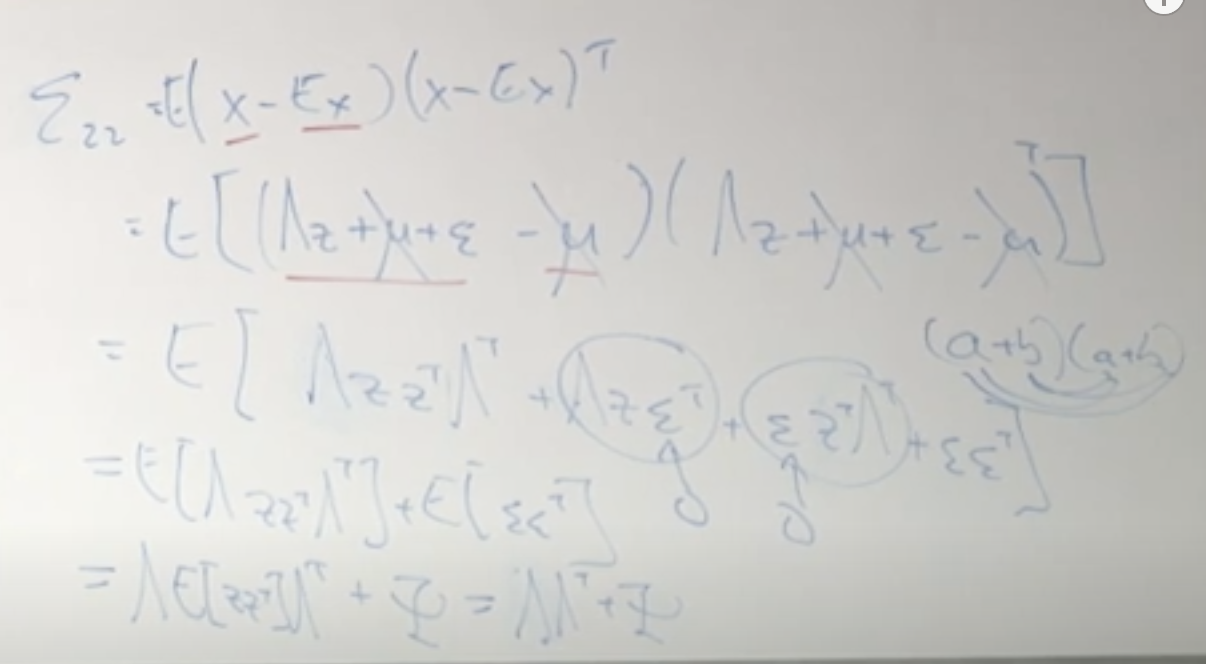 Σ₂₂ = E(x - Ex)(x - Ex)ᵀ
= E[(Λz + μ + ε - μ)(Λz + μ + ε - μ)ᵀ]
= E[ΛzzᵀΛᵀ + Λzεᵀ + εzᵀΛᵀ + εεᵀ]
(a+b)(a+b)
= E[ΛzzᵀΛᵀ] + E[εεᵀ]
0 0
= ΛE[zzᵀ]Λᵀ + Ψ = ΛΛᵀ + Ψ